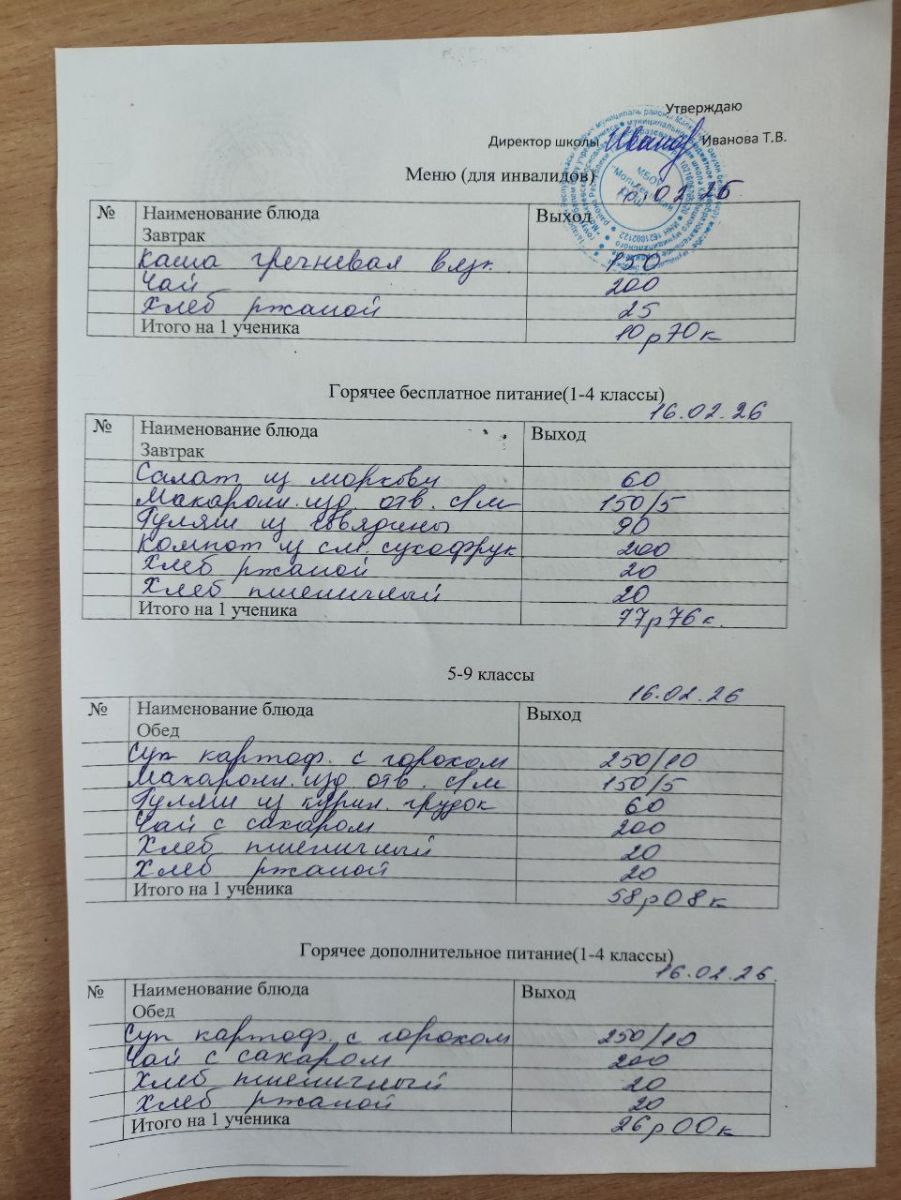 Утверждаю
Директор школы Иванова Т.В.
Меню (для инвалидов)
16.02.26
№ Наименование блюда Выход
Завтрак
Каша гречневая вязк. 150
Чай 200
Хлеб ржаной 25
Итого на 1 ученика 10р70к
Горячее бесплатное питание(1-4 классы)
16.02.26
№ Наименование блюда Выход
Завтрак
Салат из моркови 60
Макарон. изд отв. с/м 150/5
Гуляш из говядины 90
Компот из см. сухофрук 200
Хлеб ржаной 20
Хлеб пшеничный 20
Итого на 1 ученика 77р76к.
5-9 классы
16.02.26
№ Наименование блюда Выход
Обед
Суп картоф. с горохом 250/10
Макарон. изд отв. с/м 150/5
Гуляш из курин. грудок 60
Чай с сахаром 200
Хлеб пшеничный 20
Хлеб ржаной 20
Итого на 1 ученика 58р08к
Горячее дополнительное питание(1-4 классы)
16.02.26.
№ Наименование блюда Выход
Обед
Суп картоф. с горохом 250/10
Чай с сахаром 200
Хлеб пшеничный 20
Хлеб ржаной 20
Итого на 1 ученика 26р00к